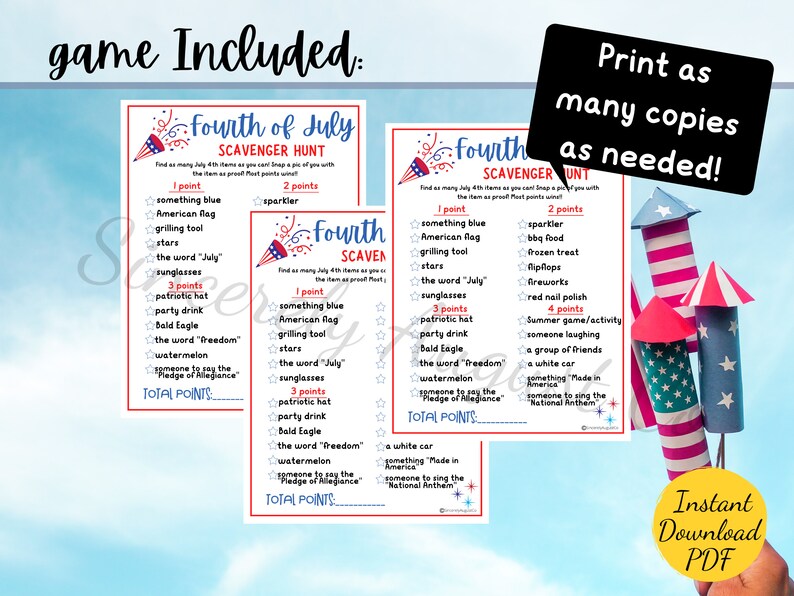 game Included:
Print as
many copies
as needed!
Fourth of July
SCAVENGER HUNT
Find as many July 4th items as you can! Snap a pic of you with
the item as proof! Most points wins!!
1 point
2 points
something blue
sparkler
American flag
grilling tool
stars
the word "July"
sunglasses
3 points
patriotic hat
party drink
Bald Eagle
the word "freedom"
watermelon
someone to say the
"Pledge of Allegiance"
TOTAL POINTS:_______
Fourth
SCAVEN
Find as many July 4th items as you ca
the item as proof! Most
1 point
something blue
American flag
grilling tool
stars
the word "July"
sunglasses
3 points
patriotic hat
party drink
Bald Eagle
the word "freedom"
a white car
watermelon
something "Made in
America"
someone to say the
"Pledge of Allegiance"
someone to sing the
"National Anthem"
TOTAL POINTS:___________
©SincerelyAugustCo
Fourth of
SCAVENGER HUNT
Find as many July 4th items as you can! Snap a pic of you with
the item as proof! Most points wins!!
1 point
2 points
something blue
sparkler
American flag
bbq food
grilling tool
frozen treat
stars
flipflops
the word "July"
fireworks
sunglasses
red nail polish
3 points
4 points
patriotic hat
Summer game/activity
party drink
someone laughing
Bald Eagle
a group of friends
the word "freedom"
a white car
watermelon
something "Made in
America"
someone to say the
"Pledge of Allegiance"
someone to sing the
"National Anthem"
TOTAL POINTS:___________
©SincerelyAugustCo
Sincerely August
Instant
Download
PDF